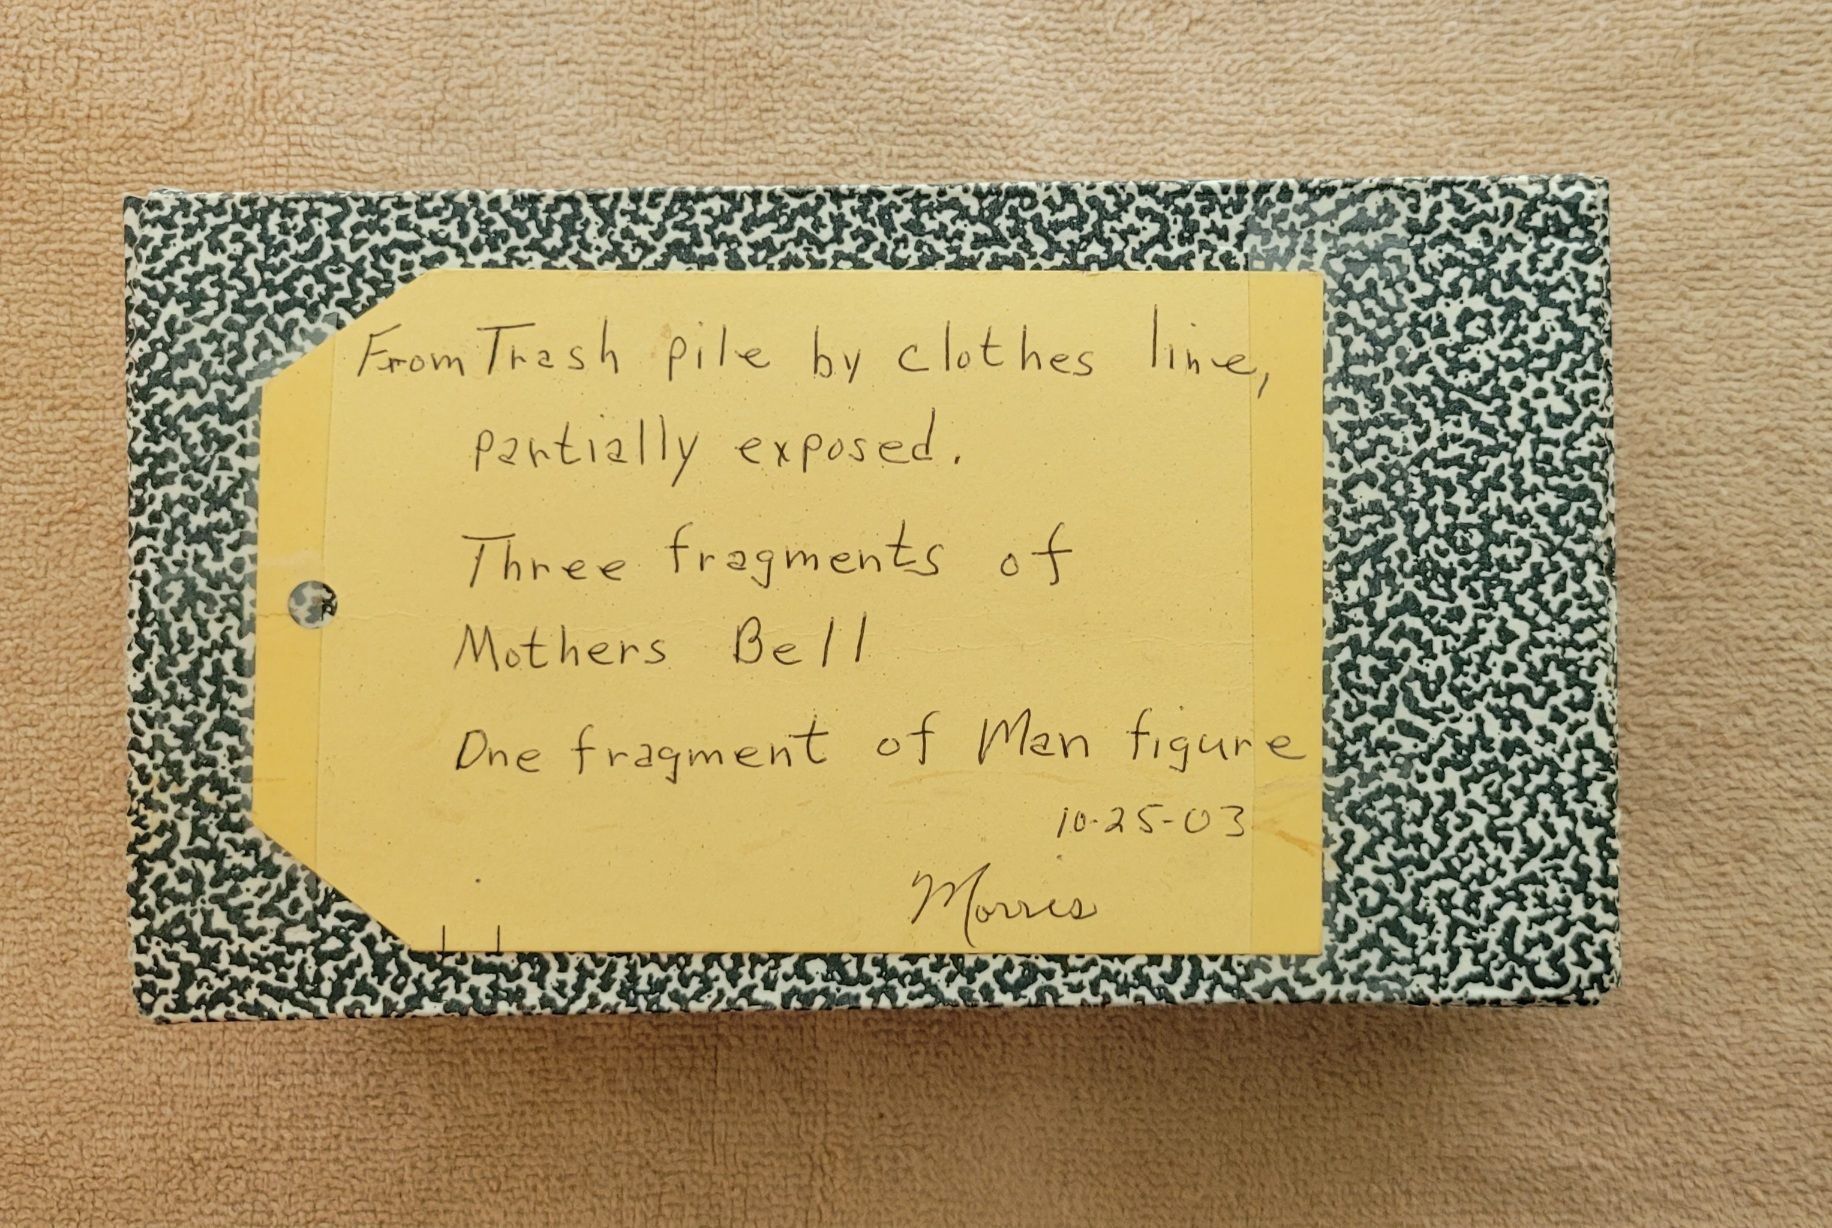 From Trash pile by clothes line,
partially exposed.
Three fragments of
Mothers Bell
One fragment of Man figure
10-25-03
Morris